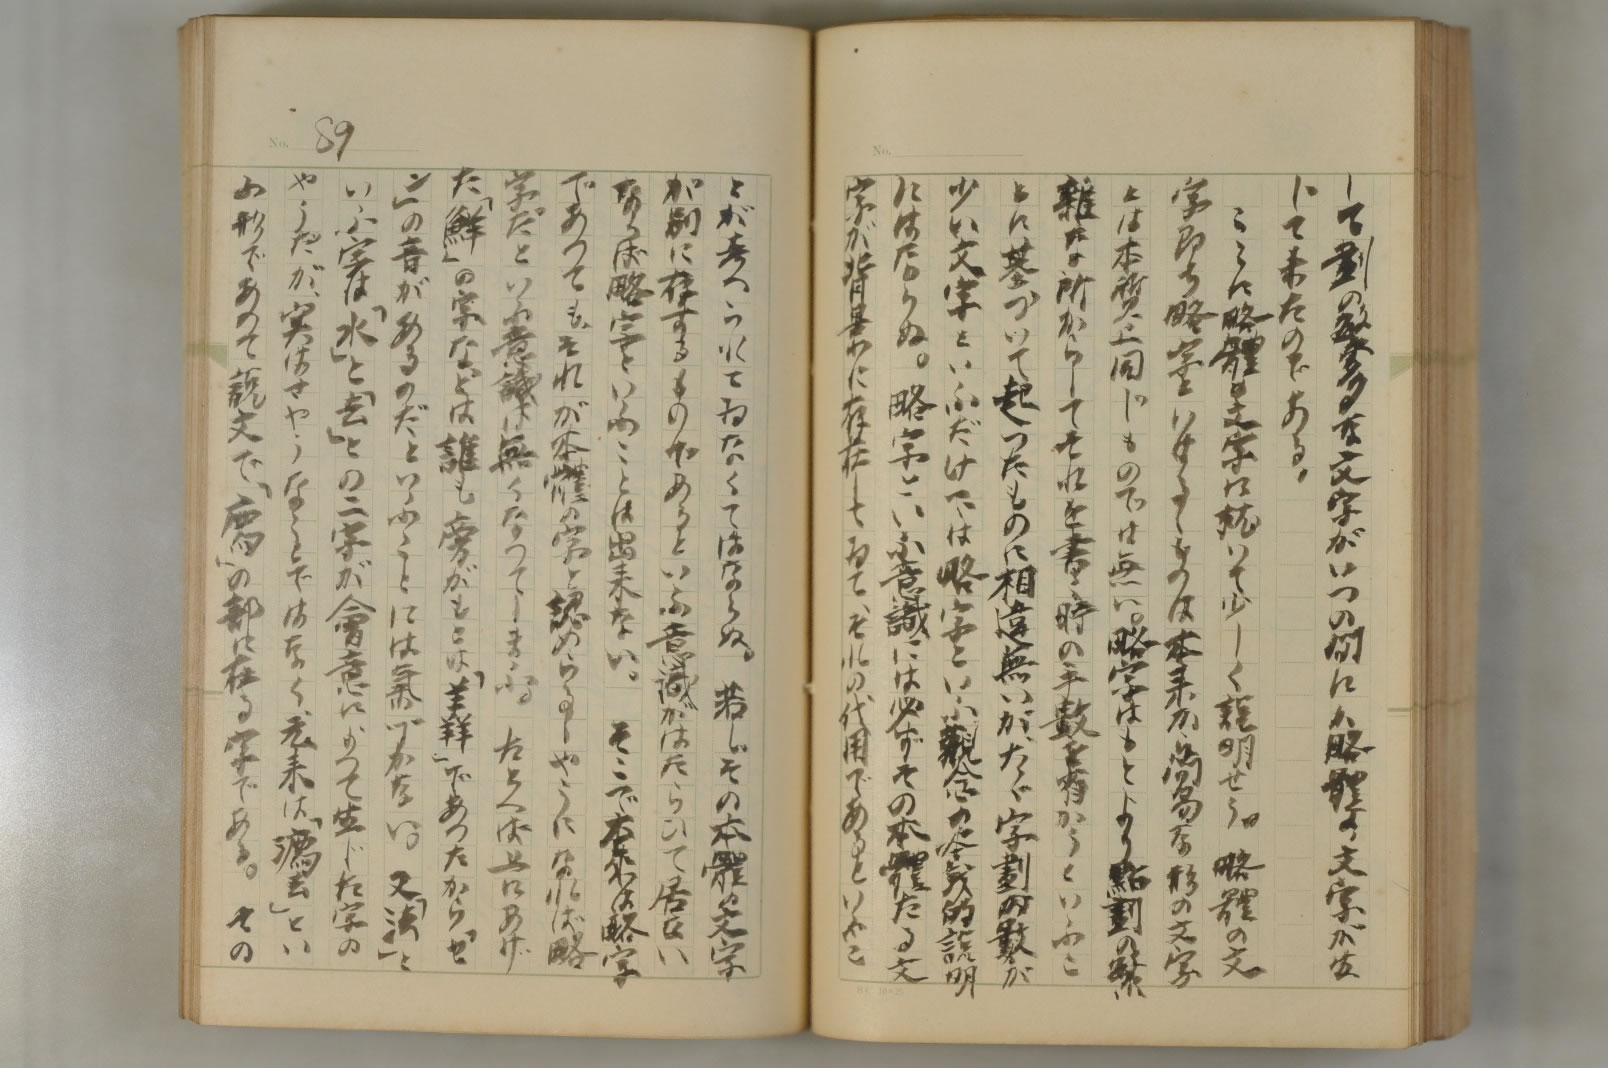 して劃の繁多な文字がいつの間にか略體の文字が生
じて来たのである。
ここに略體の文字に就いて少しく説明せう。略體の文
字即ち略字といはるるものは本来か簡易な形の文字
とは本質上同じものでは無い。略字はもとより點劃の繁
雑な所からしてそれを書く時の手數を省かうといふこ
とに基づいて起つたものに相違無いが、たゞ字劃の數が
少い文字といふだけでは略字といふ觀念の合理的説明
にはならぬ。略字といふ意識には必ずその本體たる文
字が背景に存在してゐて、それの代用であるといふこ
No. 89
とが考へられてゐなくてはならぬ。若しその本體の文字
が別に存するものであるといふ意識がはたらいて居ない
ならば略字といふことは出来ない。そこで本来は略字
であつても、それが本體の字と認めらるるやうになれば略
字だといふ意識は無くなつてしまふ。たとへば上にあげ
た「鮮」の字などは誰も旁がもとは「羊羊羊」であつたから「セ
ン」の音があるのだといふことには氣づかない。又「法」と
いふ字は「水」と「去」との二字が會意によつて生じた字の
やうだが、実はさやうなことではなく、元来は「灋」とい
ふ形であつて説文で「廌」の部に在る字である。その
No.